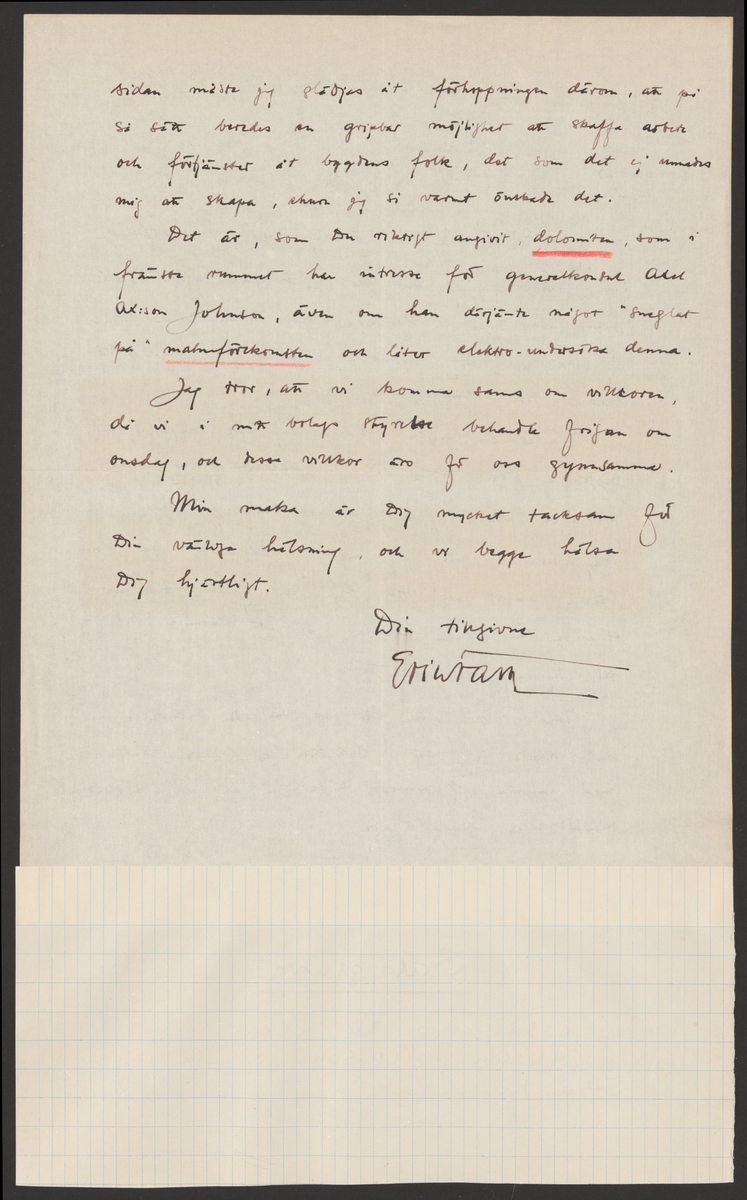 sidan måste jag glädjas åt förhoppningen därom, att på
så sätt beredes en gripbar möjlighet att skaffa arbete
och förtjänster åt bygdens folk, det som det ej unnades
mig att skapa, ehuru jag så varmt önskade det.
Det är, som Du riktigt angivit, dolomiten, som i
främsta rummet har intresse för generalkonsul Axel
Ax:son Johnson, även om han därjämte något "sneglar
på" malmförekomsten och låter elektro-undersöka denna.
Jag tror, att vi komma sams om villkoren,
då vi i mitt bolags styrelse behandla frågan om
onsdag, och dessa villkor äro för oss gynnsamma.
Min maka är Dig mycket tacksam för
Din vänliga hälsning, och vi bägge hälsa
Dig hjärtligt.
Din tillgivne